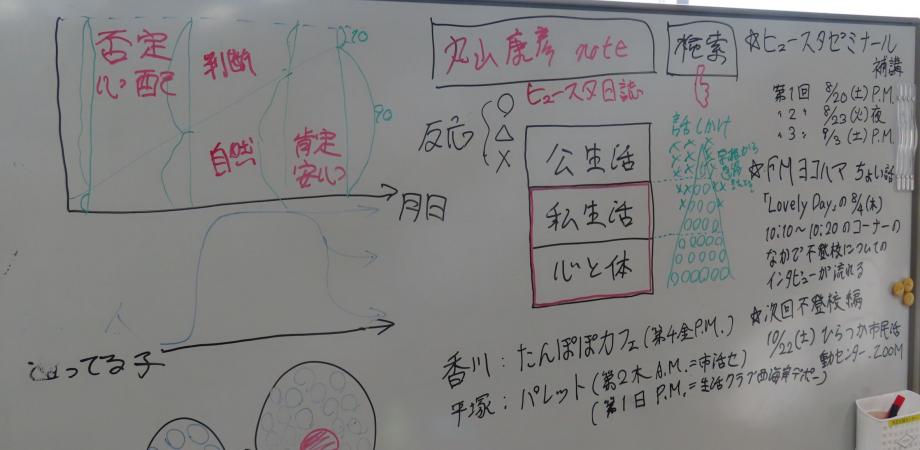 否定
心配
判断
自然
肯定
安心
10
90
月日
丸山康彦 note
検索
ヒュースタ日誌
反応
○
△
×
公生活
私生活
心と体
話しかけ
☆ヒュースタゼミナール
補講
第1回 8/20(土)P.M.
〃2〃 8/23(火)夜
〃3〃 9/3(土)P.M
☆FMヨコハマ ちょい話
「Lovely Day」の8/4(木)
10:10~10:20のコーナーの
なかで不登校についての
インタビューが流れる
☆次回不登校編
10/22(土)ひらつか市民活
動センター・ZOOM
香川:たんぽぽカフェ(第4金P.M.)
平塚:パレット(第2木A.M.=市活セ)
(第1日P.M.=生活クラブ西海岸デポー)
ってる子